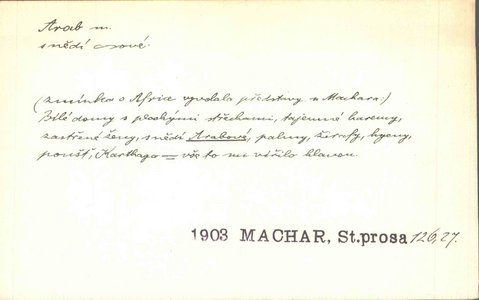 Arab m.
snědí -ové
(zmínka o Africe vyvolala představy u Machara:)
Bílé domy s plochými střechami, tajemné haremy,
zastřené ženy, snědí Arabové, palmy, žirafy, hyeny,
poušť, Karthago = vše to mi vířilo hlavou.
1903 MACHAR, St.prosa 126,27.